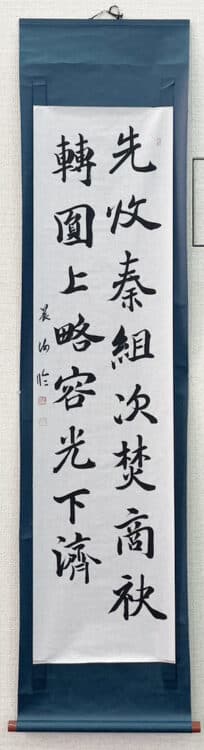 先收秦組次焚商袂
轉圓上略容光下濟
晨海臨